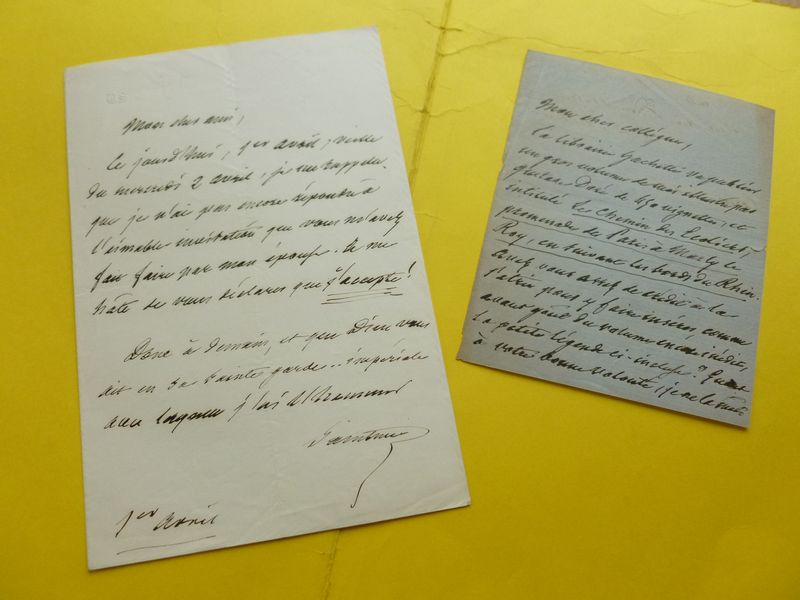 Mon cher ami,
Ce jourd'hui, 1er avril, veille
du mercredi 2 avril, je me rappelle
que je n'ai pas encore répondu à
l'aimable invitation que vous m'avez
fait faire par mon épouse. Je me
hâte de vous déclarer que j'accepte!
Donc à demain, et que Dieu vous
ait en sa sainte garde.. impériale
avec
1er avril
Mon cher collègue,
La librairie Hachette va publier
un gros volume de moi illustré par
Gustave Doré de 450 vignettes, et
intitulé Le Chemin des Ecoliers,
promenade de Paris à Marly le
Roy, en suivant les bords du Rhin.
Serez vous assez de crédit à la
patrie pour y faire insérer, comme
avant goût du volume encore inédit,
la petite légende ci-incluse?
à votre bonne volonté, je me